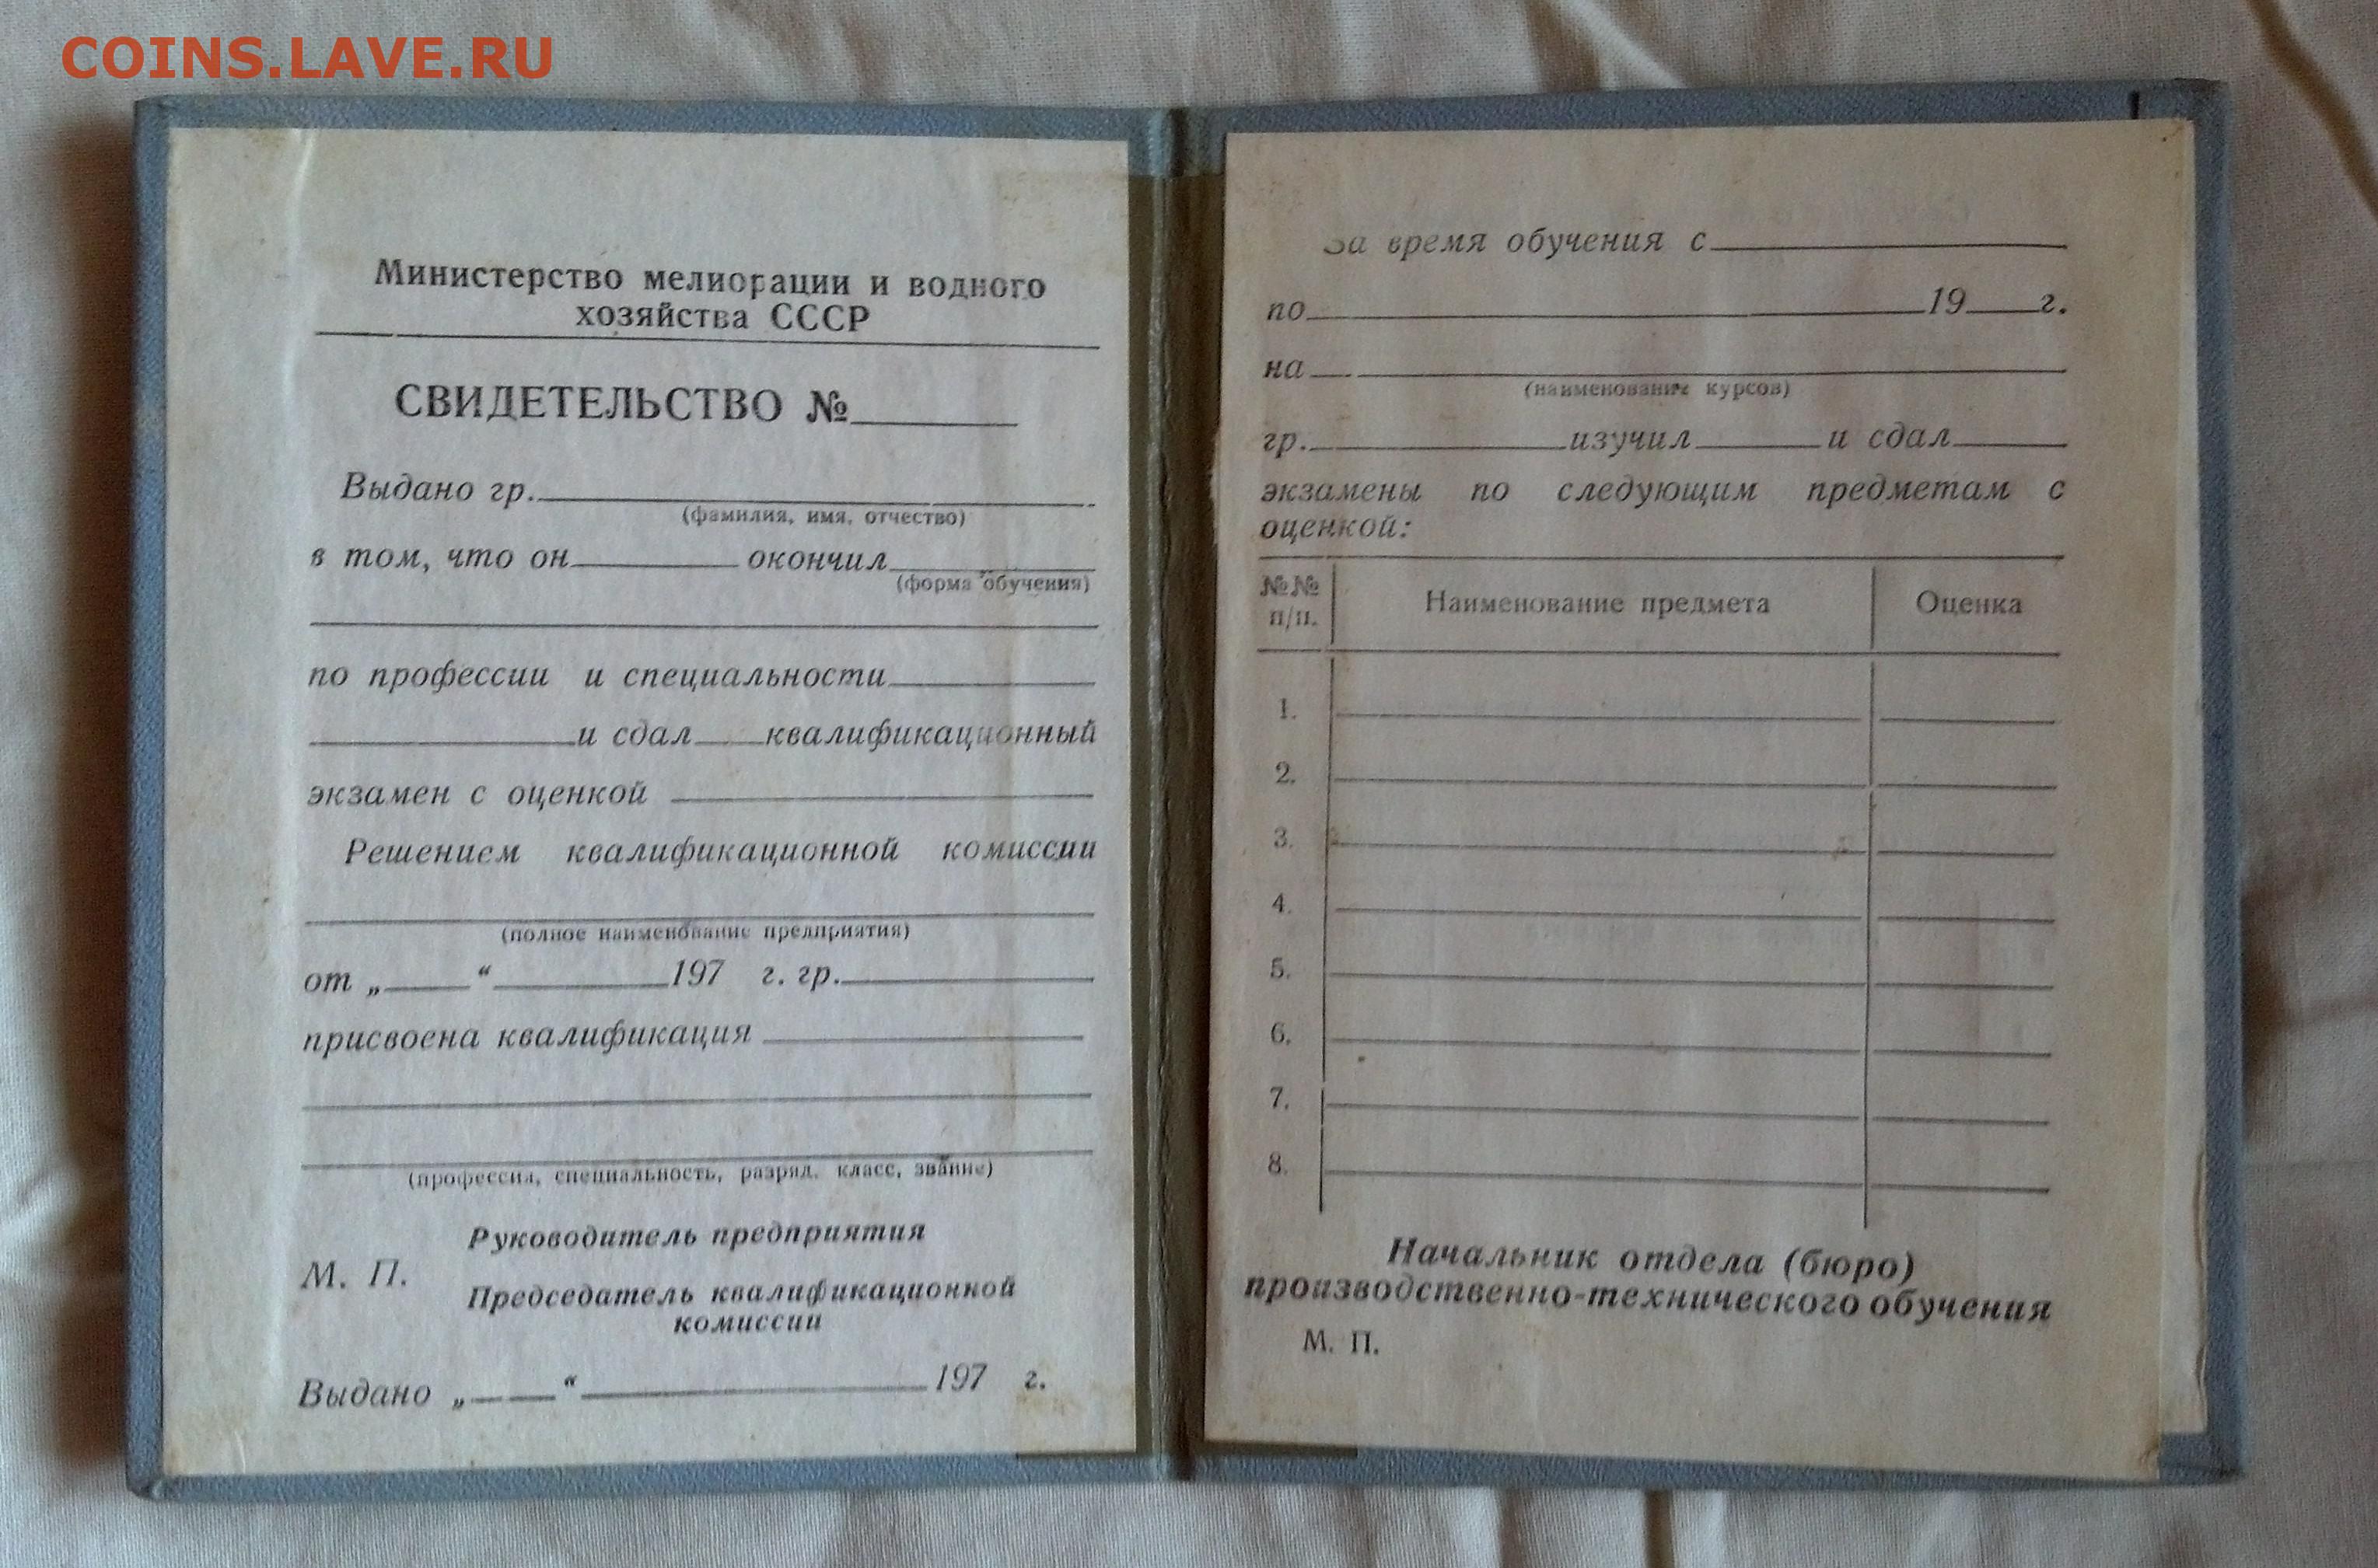 COINS.LAVE.RU
Министерство мелиорации и водного
хозяйства СССР
СВИДЕТЕЛЬСТВО №
Выдано гр.
(фамилия, имя, отчество)
в том, что он окончил
(форма обучения)
по профессии и специальности
и сдал квалификационный
экзамен с оценкой
Решением квалификационной комиссии
(полное наименование предприятия)
от „ “ 197 г. гр.
присвоена квалификация
(профессия, специальность, разряд, класс, звание)
Руководитель предприятия
М. П.
Председатель квалификационной
комиссии
Выдано „ “ 197 г.
За время обучения с
по 19 г.
на
(наименование курсов)
гр. изучил и сдал
экзамены по следующим предметам с
оценкой:
№№ п/п. Наименование предмета Оценка
1.
2.
3.
4.
5.
6.
7.
8.
Начальник отдела (бюро)
производственно-технического обучения
М. П.